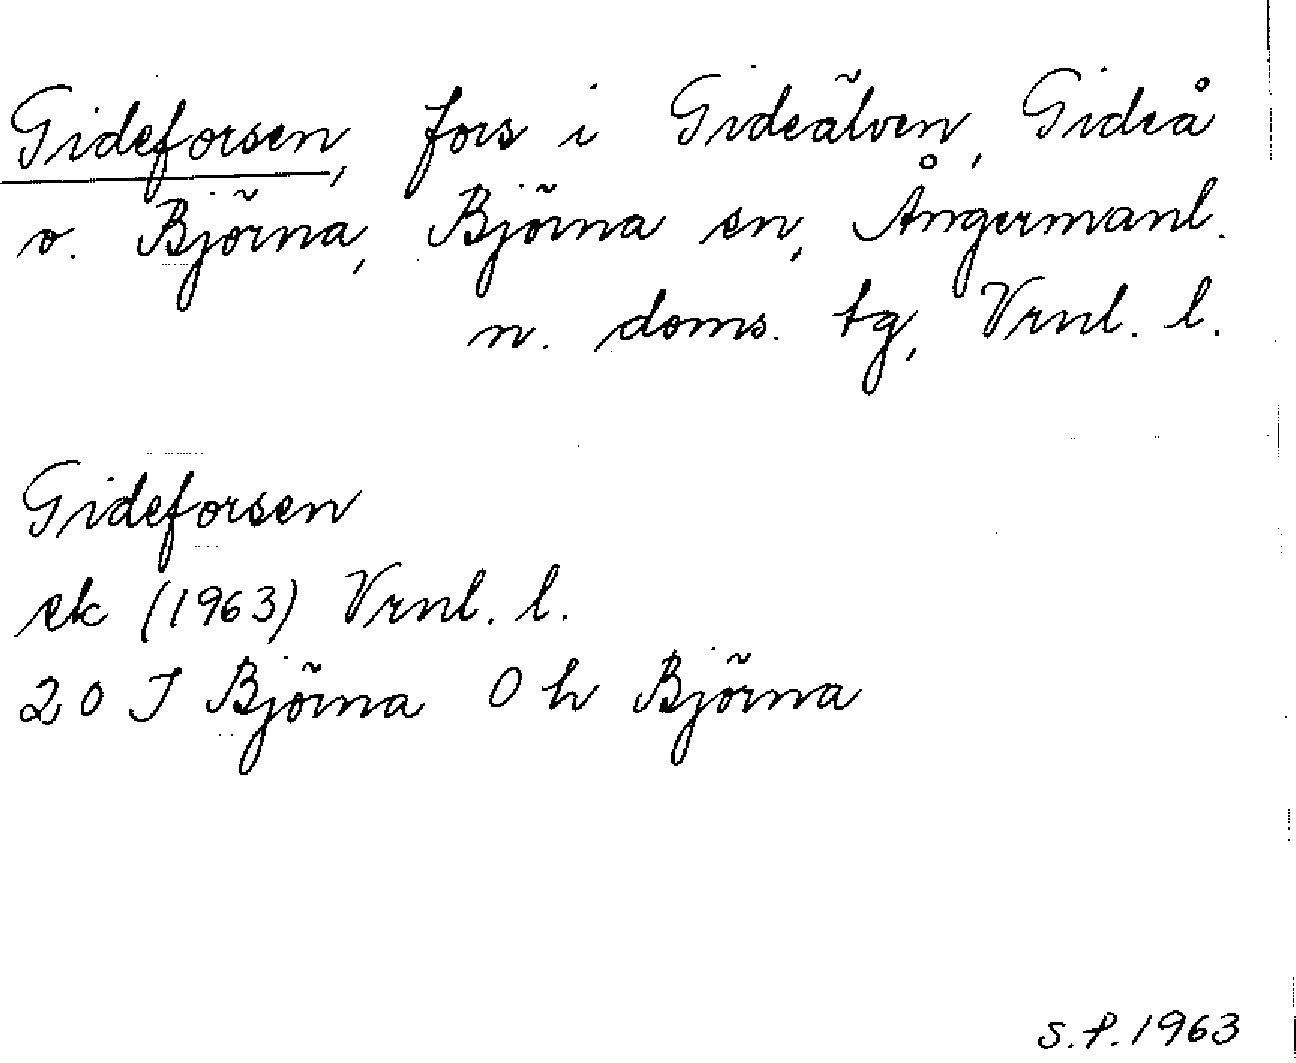 Gideforsen, fors i Gideälven, Gideå
o. Björna, Björna sn, Ångermanl.
n. doms. tg, Vrnl. l.
Gideforsen
ek (1963) Vrnl. l.
20 I Björna 0 h Björna
S.P. 1963